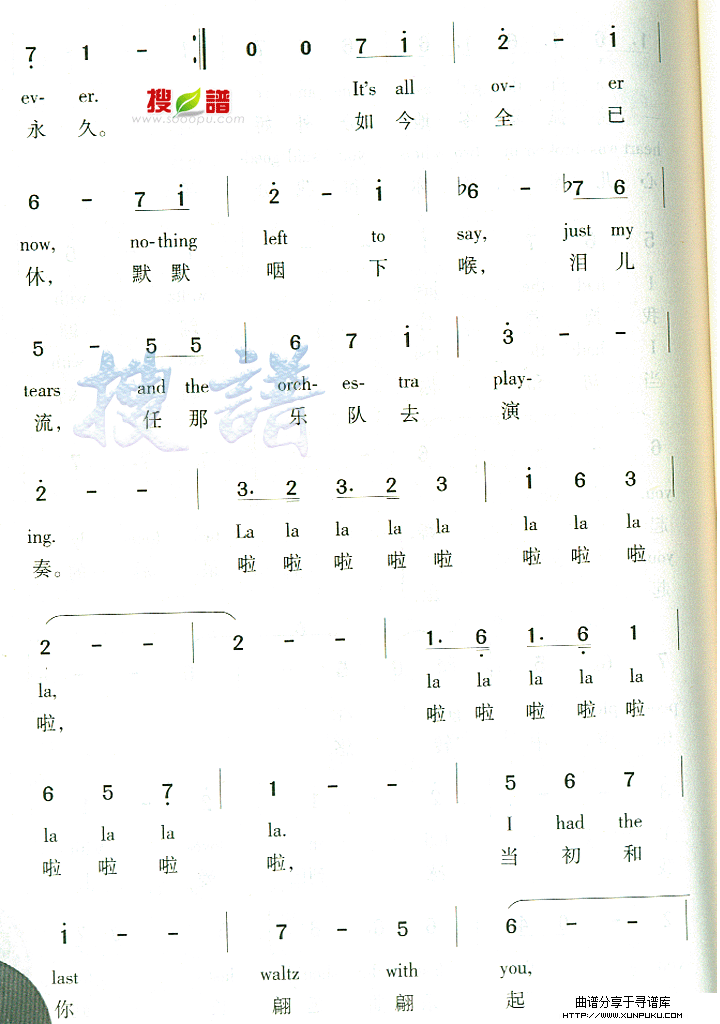 7 1 - :| 0 0 7 i | 2 - i |
ev- er. It's all ov- er
永 久。 如 今 全 已
搜 譜
www.sooopu.com
6 - 7 i | 2 - i | ♭6 - ♭7 6 |
now, no-thing left to say, just my
休, 默 默 咽 下 喉, 泪 儿
5 - 5 5 | 6 7 i | 3 - - |
tears and the orch- es- tra play-
流, 任 那 乐 队 去 演
搜 譜
2 - - | 3. 2 3. 2 3 | i 6 3 |
ing. La la la la la la la la
奏。 啦 啦 啦 啦 啦 啦 啦 啦
2 - - | 2 - - | 1. 6 1. 6 1 |
la, la la la la la
啦, 啦 啦 啦 啦 啦
6 5 7 | 1 - - | 5 6 7 |
la la la la. I had the
啦 啦 啦 啦, 当 初 和
i - - | 7 - 5 | 6 - -
last waltz with you,
你 翩 翩 起
曲谱分享于寻谱库
HTTP://WWW.XUNPUKU.COM